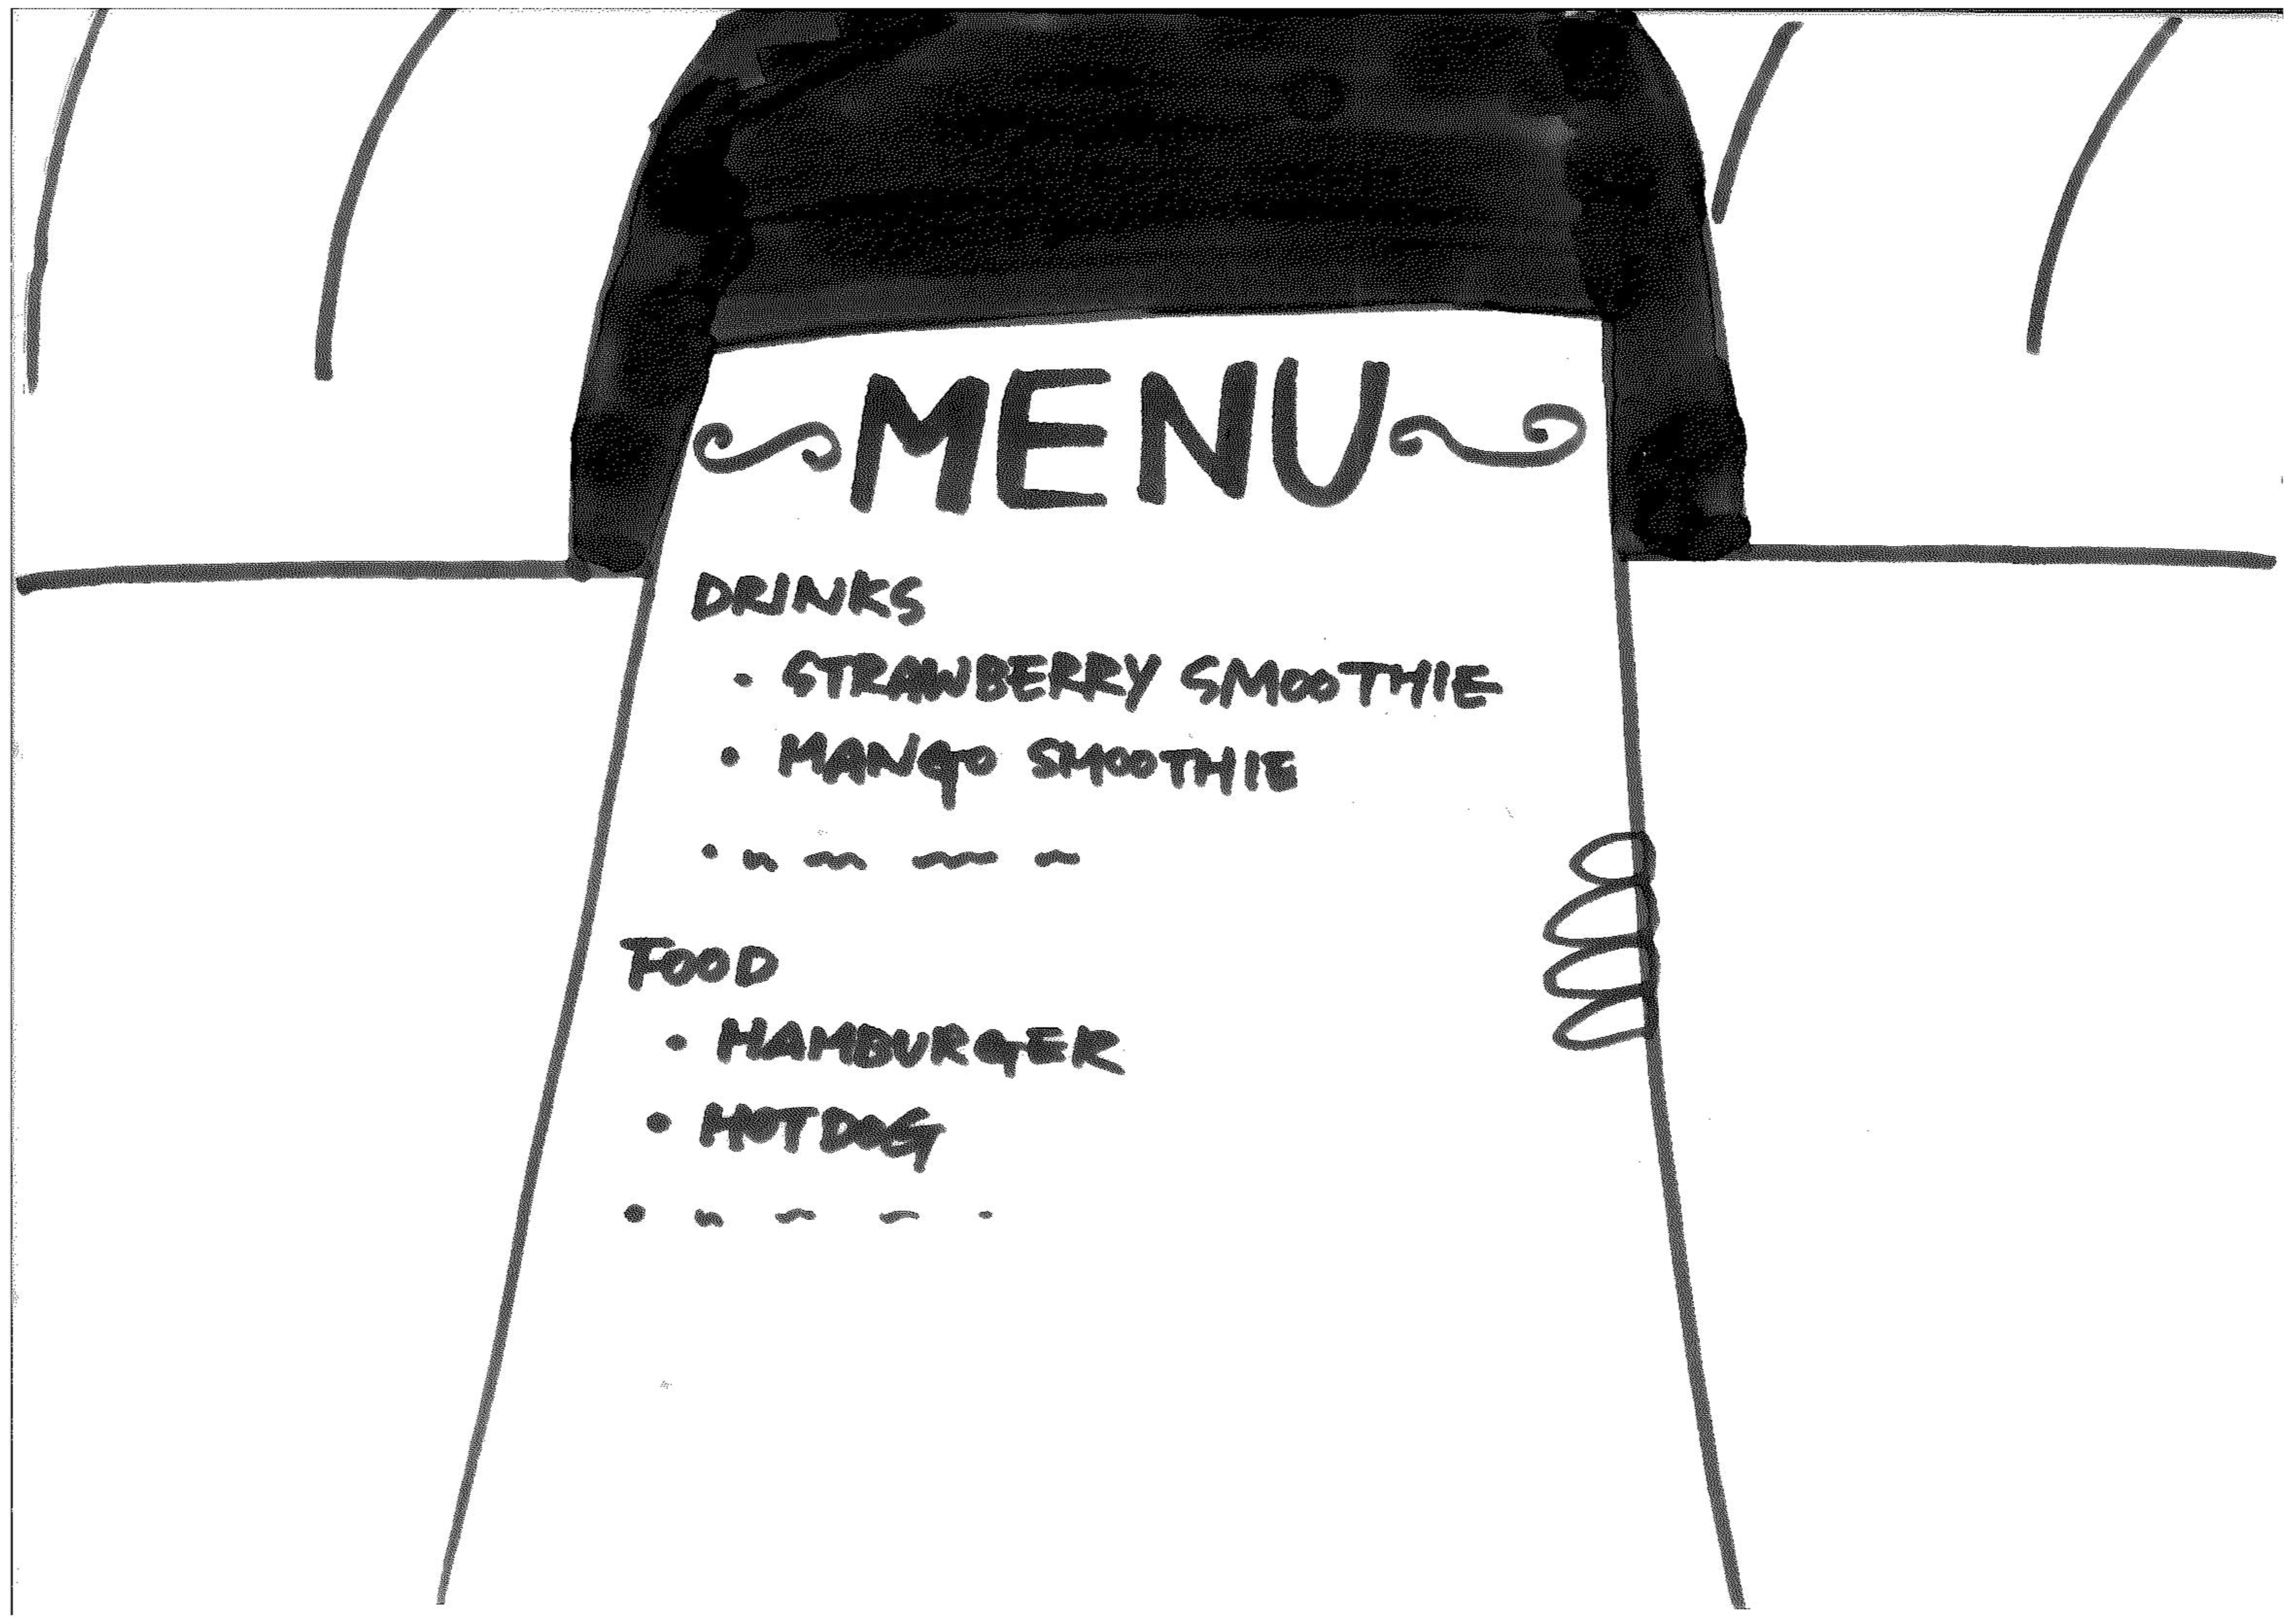 MENU
DRINKS
• STRAWBERRY SMOOTHIE
• MANGO SMOOTHIE
FOOD
• HAMBURGER
• HOTDOG